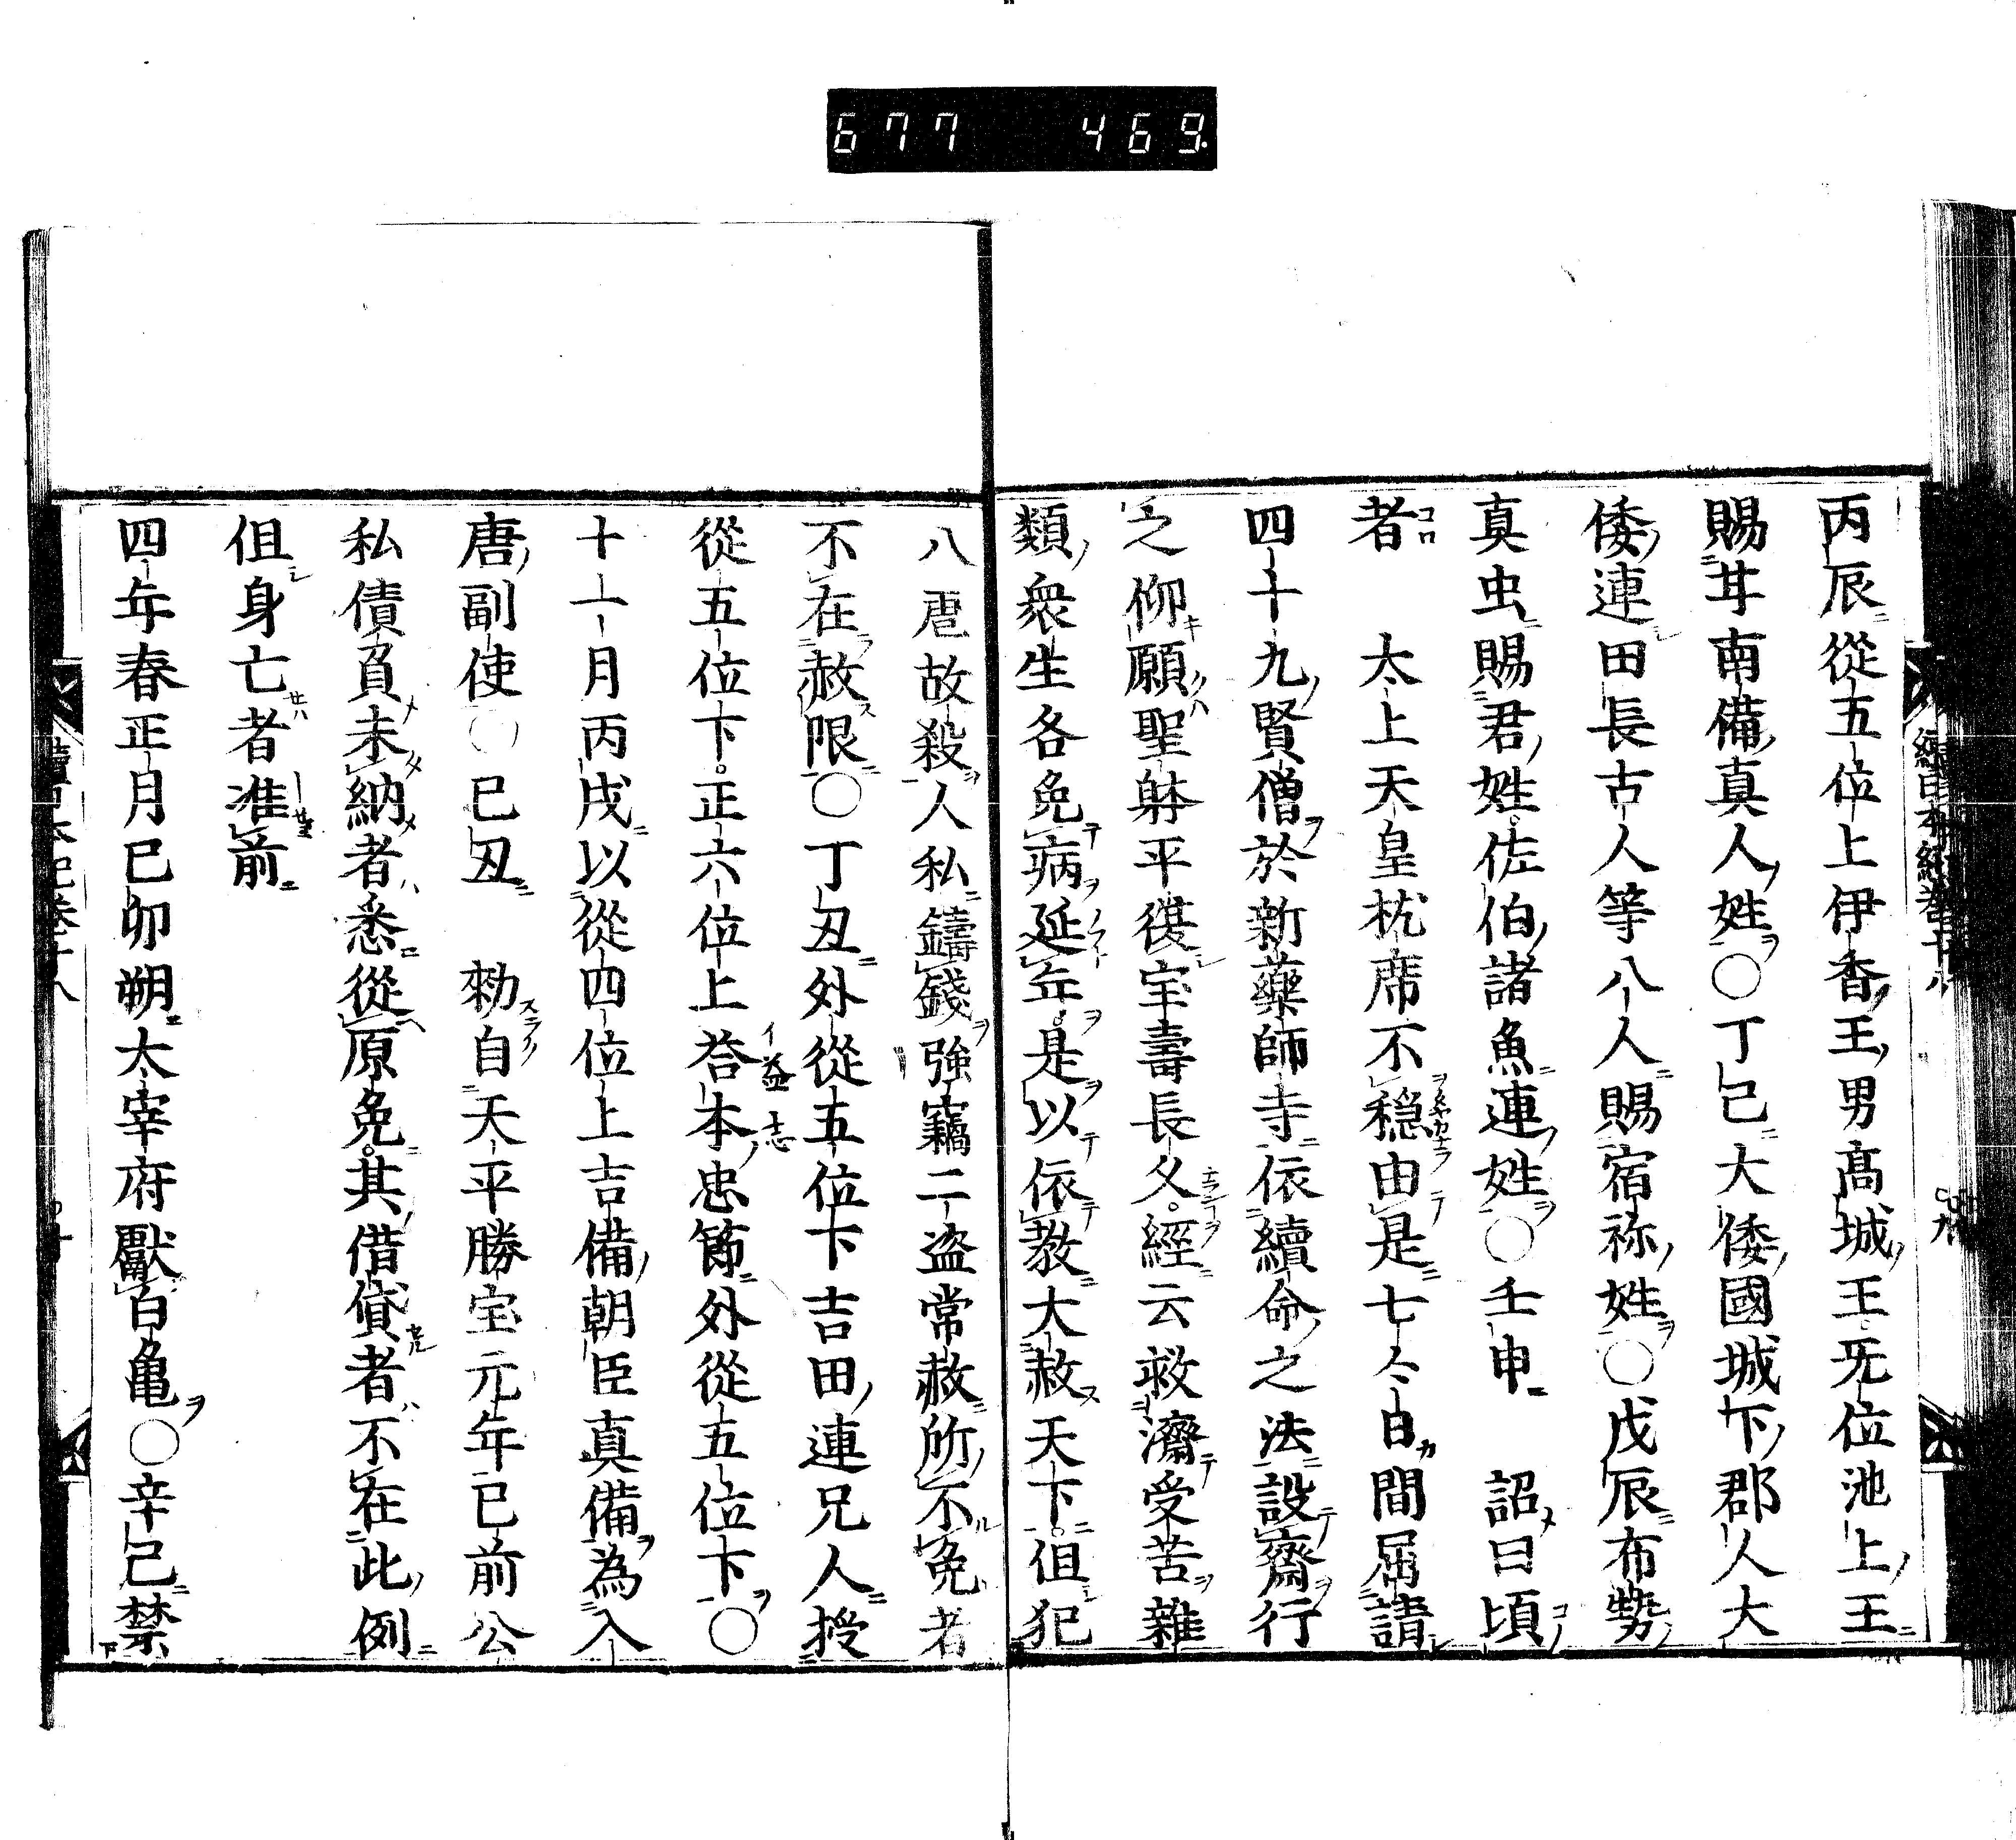 677 469
丙辰從五位上伊香王男高城王旡位池上王
賜甘南備真人姓○丁巳大倭國城下郡人大
倭連田長古人等八人賜宿祢姓○戊辰布勢
真虫賜君姓佐伯諸魚連姓○壬申 詔曰頃
者 太上天皇枕席不穏由是七〻日間屈請
四十九賢僧於新藥師寺依續命之法設齋行
之仰願聖躰平復宝壽長久經云救濟受苦雜
類衆生各免病延年是以依教大赦天下但犯
八虐故殺人私鑄錢強竊二盗常赦所不免者
不在赦限○丁丑外從五位下吉田連兄人授
從五位下正六位上荅本忠節外從五位下○
十一月丙戌以從四位上吉備朝臣真備為入
唐副使○己丑 勑自天平勝宝元年已前公
私債負未納者悉從原免其借貸者不在此例
但身亡者准前
四年春正月己卯朔太宰府獻白亀○辛己禁